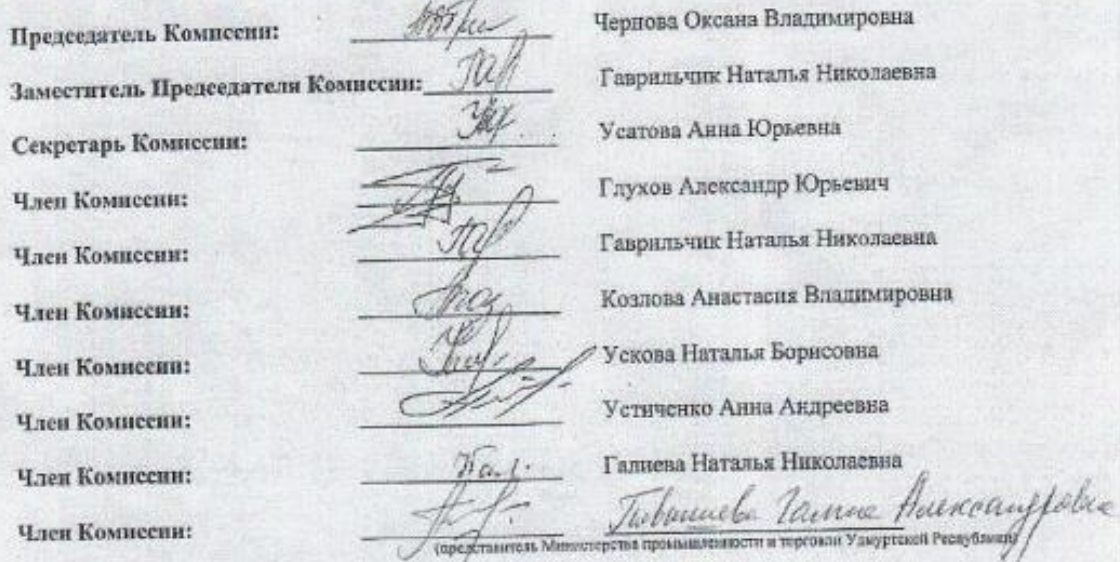 Председатель Комиссии: Чернова Оксана Владимировна
Заместитель Председателя Комиссии: Гаврильчик Наталья Николаевна
Секретарь Комиссии: Усатова Анна Юрьевна
Член Комиссии: Глухов Александр Юрьевич
Член Комиссии: Гаврильчик Наталья Николаевна
Член Комиссии: Козлова Анастасия Владимировна
Член Комиссии: Ускова Наталья Борисовна
Член Комиссии: Устиченко Анна Андреевна
Член Комиссии: Галиева Наталья Николаевна
Член Комиссии: Галина Александровна
(представитель Министерства промышленности и торговли Удмуртской Республики)